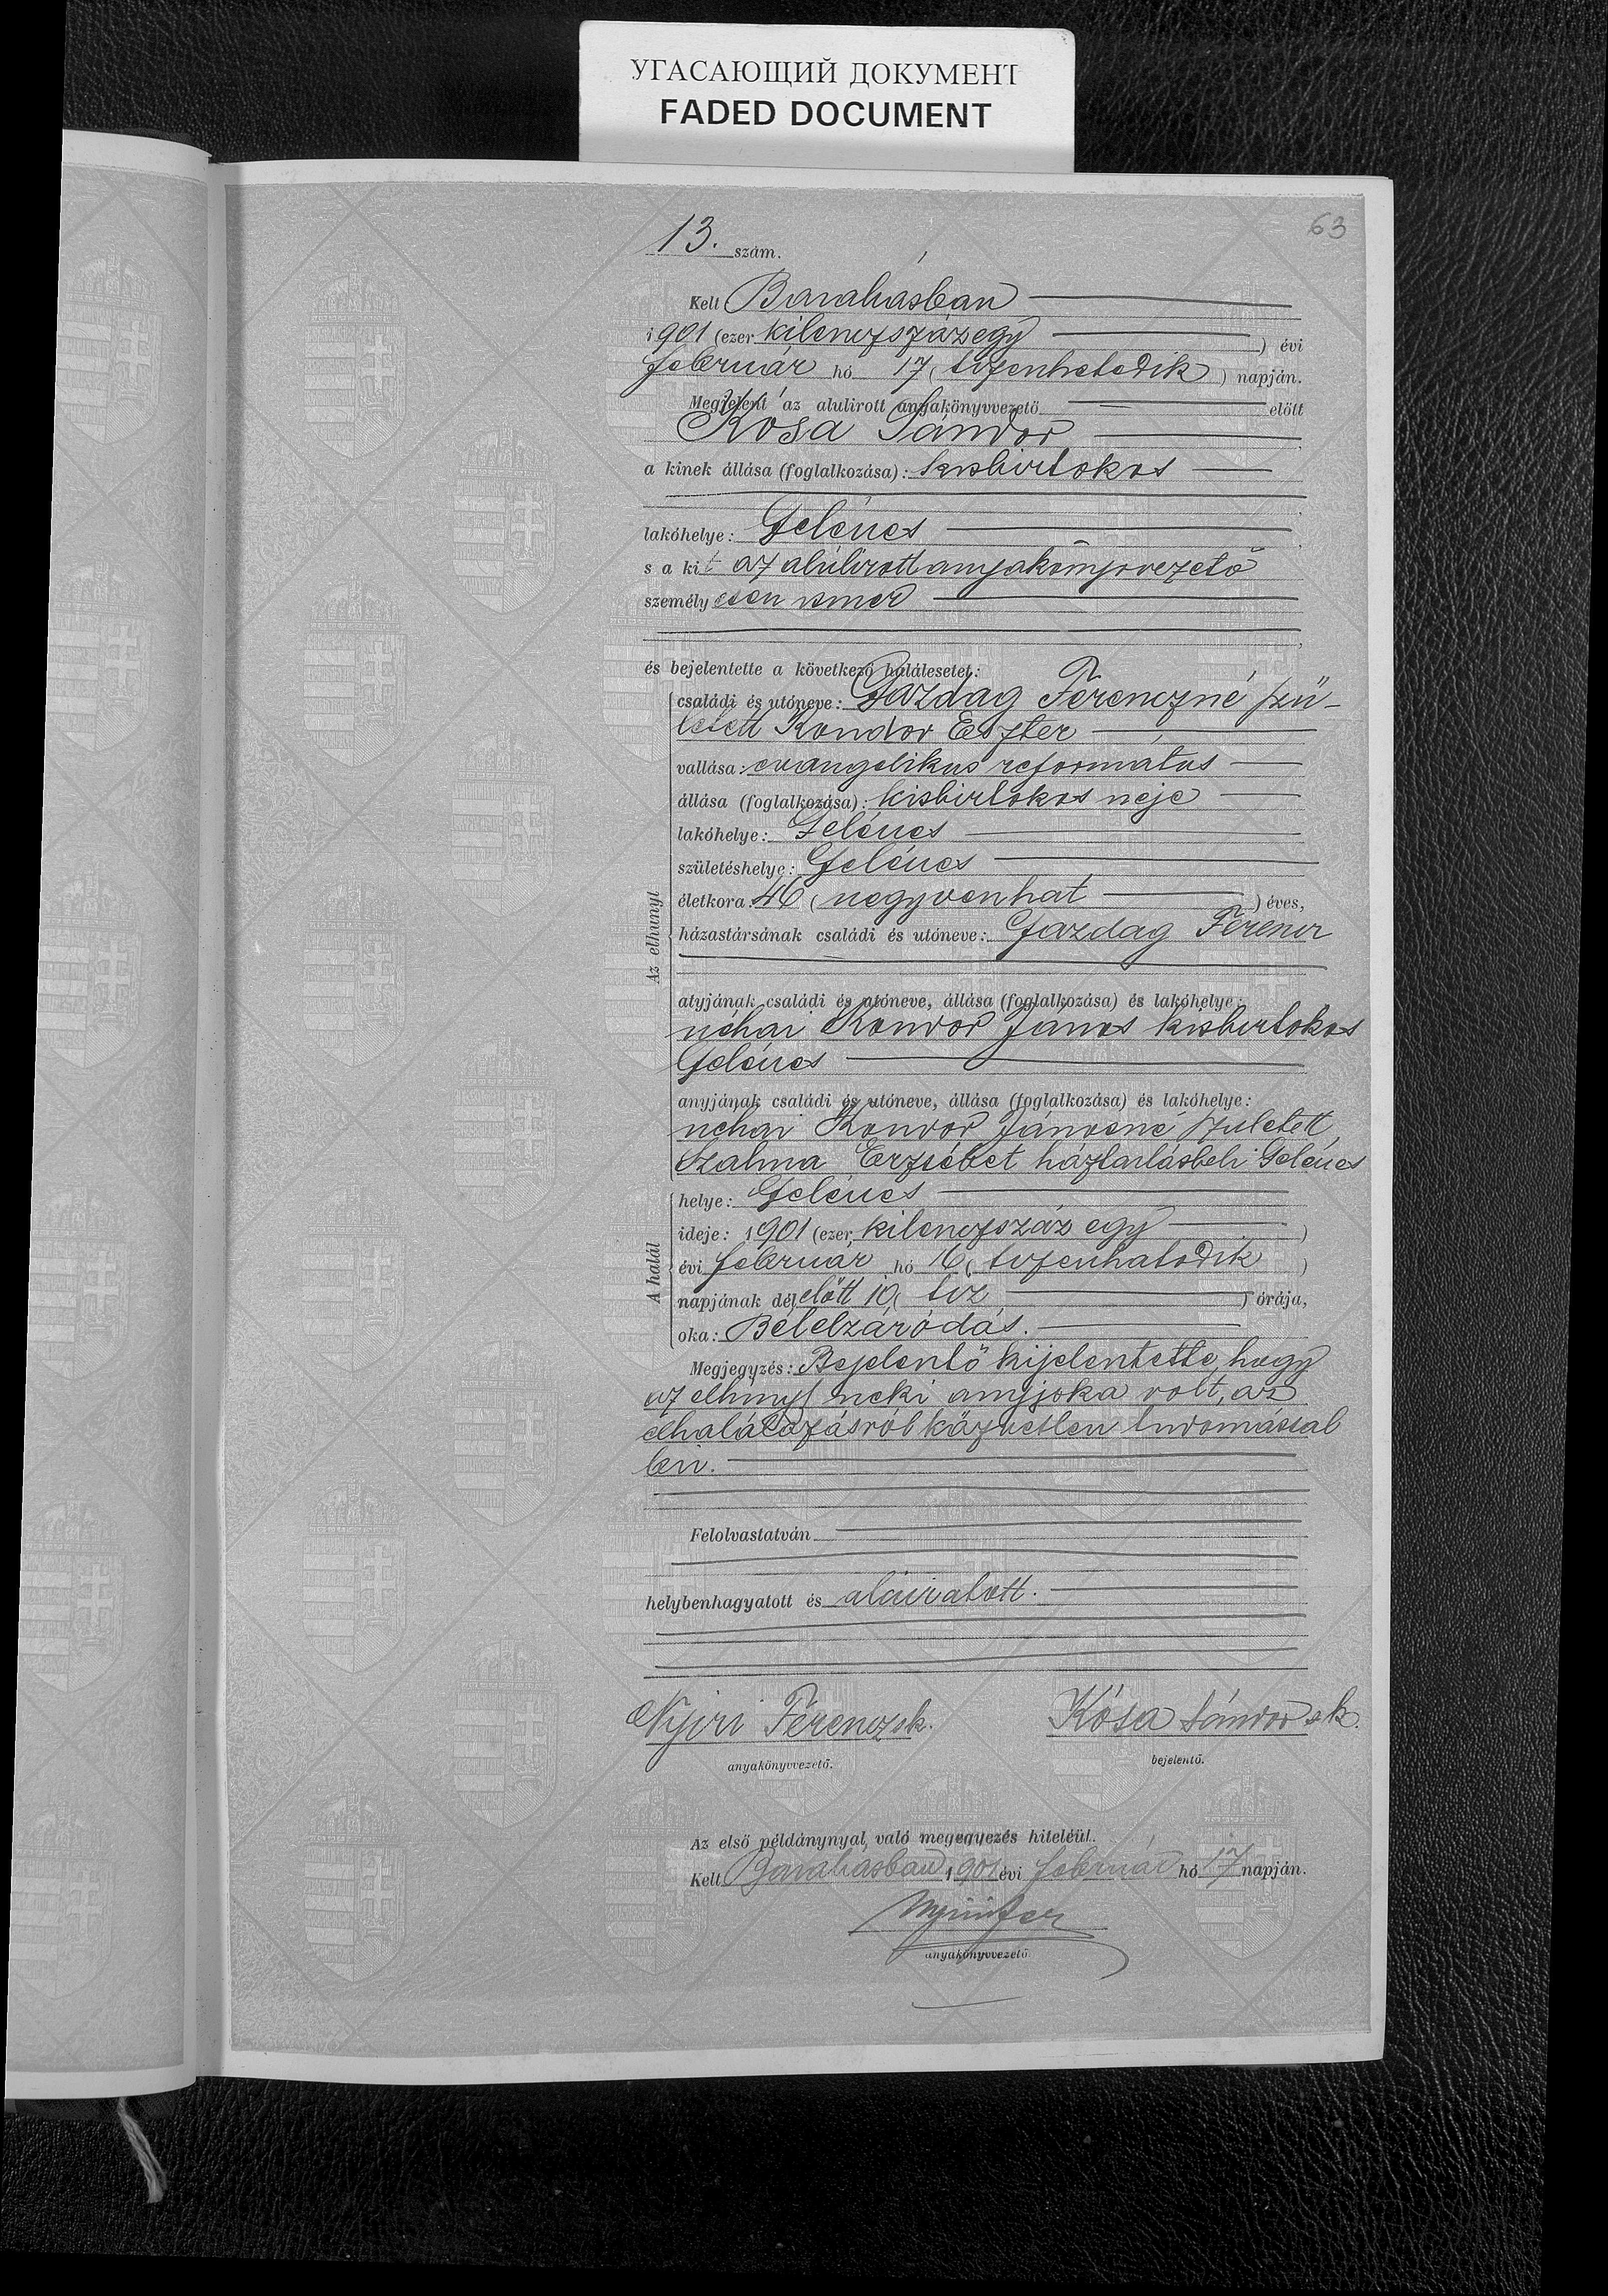 УГАСАЮЩИЙ ДОКУМЕНТ
FADED DOCUMENT
63
13. szám.
Kelt Barabásban
1901 (ezer kilenczszázegy ) évi
február hó 17 ( tizenhetedik ) napján.
Megjelent az alulirott anyakönyvvezető előtt
Kósa Sándor
a kinek állása (foglalkozása): kisbirtokos
lakóhelye: Gelénes
s a kit az alúlirott anyakönyvvezető
személyesen ismer
és bejelentette a következő halálesetet:
Az elhunyt
családi és utóneve: Gazdag Ferenczné szü-
letett Kondor Eszter
vallása: evangelikus református
állása (foglalkozása): kisbirtokos neje
lakóhelye: Gelénes
születéshelye: Gelénes
életkora: 46 ( negyvenhat ) éves,
házastársának családi és utóneve: Gazdag Ferencz
atyjának családi és utóneve, állása (foglalkozása) és lakóhelye:
néhai Kondor János kisbirtokos
Gelénes
anyjának családi és utóneve, állása (foglalkozása) és lakóhelye:
néhai Kondor Jánosné született
Szalma Erzsébet háztartásbeli Gelénes
A halál
helye: Gelénes
ideje: 1901 (ezer kilenczszáz egy )
évi február hó 16 ( tizenhatodik )
napjának délelőtt 10 ( tiz ) órája,
oka: Bélelzáródás.
Megjegyzés: Bejelentő kijelentette, hogy
az elhunyt neki anyjoka volt, az
elhalálozásról közvetlen tudomással
bir.
Felolvastatván
helybenhagyatott és aláiratott.
Nyiri Ferencz sk. Kósa Sándor sk.
anyakönyvvezető. bejelentő.
Az első példánynyal való megegyezés hiteléül.
Kelt Barabásban 1901 évi február hó 17 napján.
anyakönyvvezető.